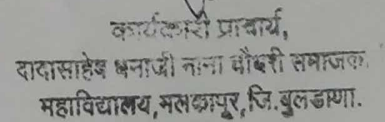 कार्यकारी प्राचार्य,
दादासाहेब धनाजी नाना चौधरी समाजका.
महाविद्यालय, मलकापुर, जि. बुलडाणा.